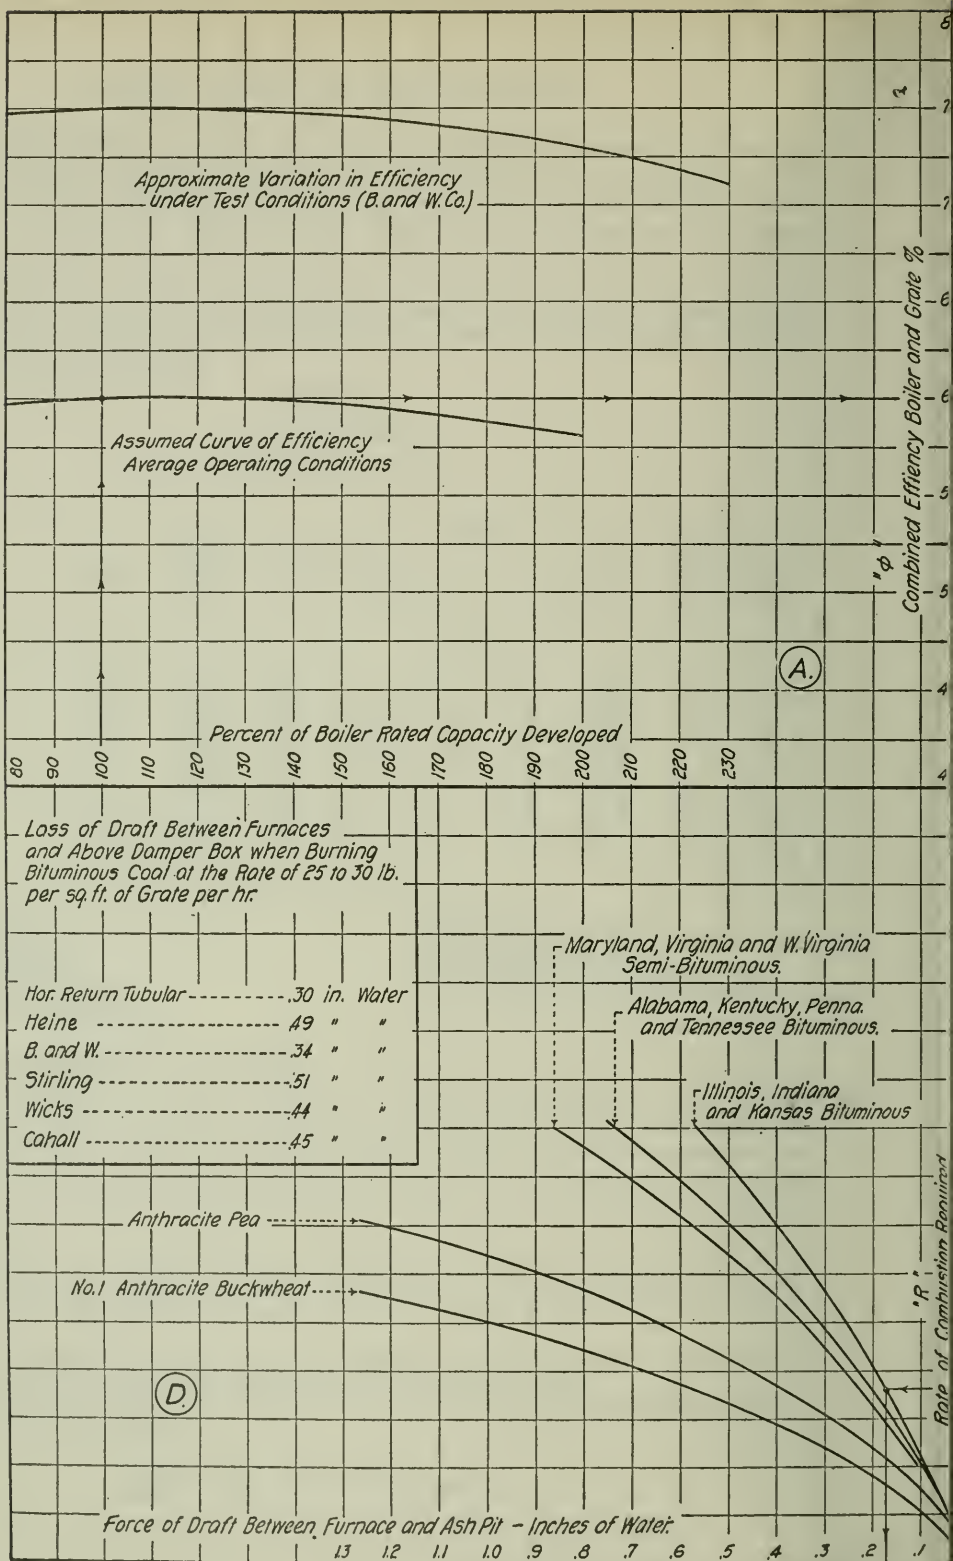 8
7
Approximate Variation in Efficiency
under Test Conditions (B. and W. Co.)
7
6
6
Assumed Curve of Efficiency
Average Operating Conditions
5
"Φ"
Combined Effiency Boiler and Grate %
5
A.
4
Percent of Boiler Rated Capacity Developed
80 90 100 110 120 130 140 150 160 170 180 190 200 210 220 230
4
Loss of Draft Between Furnaces
and Above Damper Box when Burning
Bituminous Coal at the Rate of 25 to 30 lb.
per sq. ft. of Grate per hr.
Hor. Return Tubular .30 in. Water
Heine .49 " "
B. and W. .34 " "
Stirling .51 " "
Wicks .44 " "
Cahall .45 " "
Maryland, Virginia and W. Virginia
Semi-Bituminous.
Alabama, Kentucky, Penna.
and Tennessee Bituminous.
Illinois, Indiana
and Kansas Bituminous
Anthracite Pea
No.1 Anthracite Buckwheat
"R"
Rate of Combustion Required
D.
Force of Draft Between Furnace and Ash Pit - Inches of Water.
1.3 1.2 1.1 1.0 .9 .8 .7 .6 .5 .4 .3 .2 .1